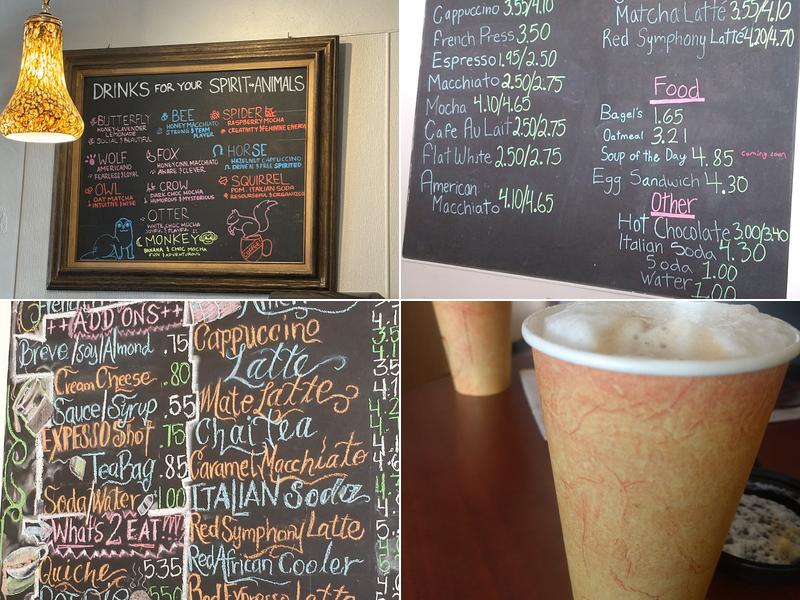 DRINKS FOR YOUR SPIRIT ANIMALS
BUTTERFLY
HONEY-LAVENDER
LEMONADE
SOCIAL & BEAUTIFUL
BEE
HONEY MACCHIATO
STRONG & TEAM
PLAYER
SPIDER
RASPBERRY MOCHA
CREATIVITY & FEMININE ENERGY
WOLF
AMERICANO
FEARLESS & LOYAL
FOX
HONEY CINN. MACCHIATO
AWARE & CLEVER
HORSE
HAZELNUT CAPPUCCINO
DRIVEN & FREE SPIRITED
OWL
OAT MATCHA
INTUITIVE & WISE
CROW
DARK CHOC MOCHA
HUMOROUS & MYSTERIOUS
SQUIRREL
POM. ITALIAN SODA
RESOURCEFUL & ORGANIZED
OTTER
WHITE CHOC MOCHA
MONKEY
BANANA & CHOC MOCHA
FUN & ADVENTUROUS
Cappuccino 3.55/4.10
French Press 3.50
Espresso 1.95/2.50
Macchiato 2.50/2.75
Mocha 4.10/4.65
Cafe Au Lait 2.50/2.75
Flat White 2.50/2.75
American
Macchiato 4.10/4.65
Matcha Latte 3.55/4.10
Red Symphony Latte 4.20/4.70
Food
Bagel's 1.65
Oatmeal 3.21
Soup of the Day 4.85 coming soon
Egg Sandwich 4.30
Other
Hot Chocolate 3.00/3.40
Italian Soda 4.30
Soda 1.00
Water 1.00
++ADD ONS++
Breve/Soy/Almond .75
Cream Cheese .80
Sauce/Syrup .55
EXPESSO Shot .75
Tea Bag .85
Soda/Water 1.00
What's 2 EAT!!!
Quiche 5.35
Cappuccino
Latte
Mate Latte
Chai Tea
Caramel Macchiato
ITALIAN Soda
Red Symphony Latte
Red African Cooler
Red Expresso Latte